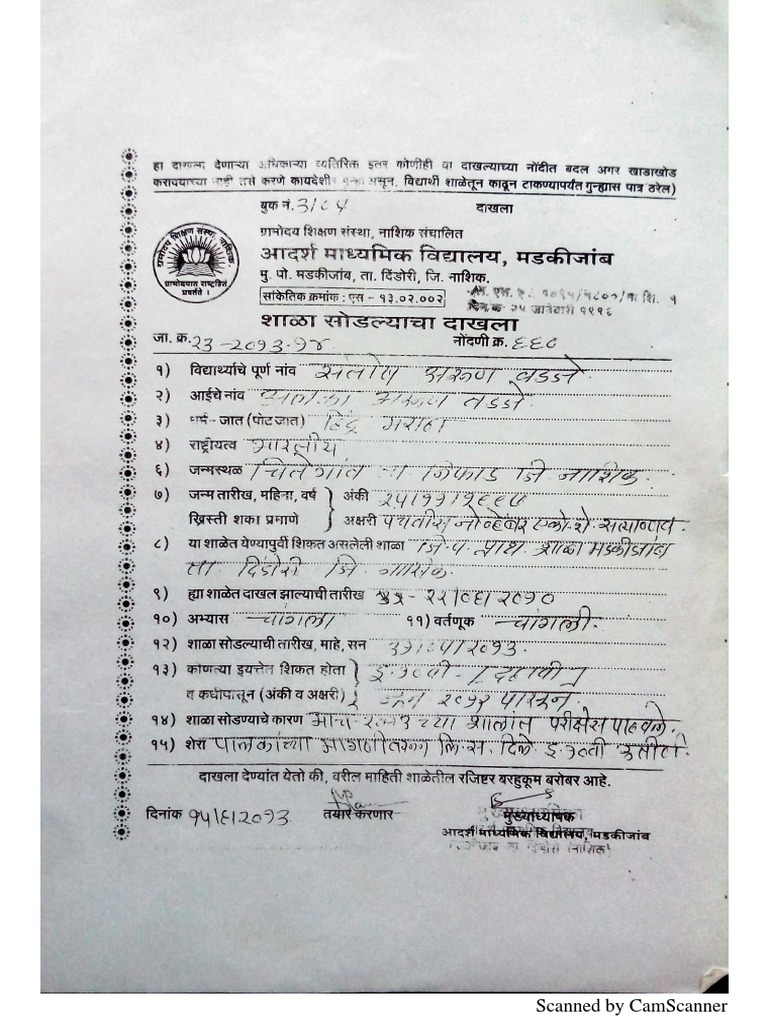 हा दाखला देणाऱ्या अधिकाऱ्या व्यतिरिक्त इतर कोणीही या दाखल्याच्या नोंदीत बदल अगर खाडाखोड
करावयाच्या नाही तसे करणे कायदेशीर गुन्हा असून, विद्यार्थी शाळेतून काढून टाकण्यापर्यंत गुन्ह्यास पात्र ठरेल)
बुक नं. दाखला
ग्रामोदय शिक्षण संस्था, नाशिक संचालित
आदर्श माध्यमिक विद्यालय, मडकीजांब
मु. पो. मडकीजांब, ता. दिंडोरी, जि. नाशिक.
सांकेतिक क्रमांक : एस - १३.०२.००२
ग्रामोदय शिक्षण संस्था, नाशिक.
ग्रामोदयास राष्ट्रहितं प्रवर्तते ।
जानेवारी १९९६
शाळा सोडल्याचा दाखला
जा. क्र. २३-२०१३-१४ नोंदणी क्र. ६६०
१) विद्यार्थ्याचे पूर्ण नांव संतोष अरुण वडजे
२) आईचे नांव अलका अरुण वडजे
३) धर्म - जात (पोटजात) हिंदू मराठा
४) राष्ट्रीयत्व भारतीय
६) जन्मस्थळ चितेगांव ता निफाड जि नाशिक
७) जन्म तारीख, महिना, वर्ष अंकी २५/११/१९९७
ख्रिस्ती शका प्रमाणे अक्षरी पंचवीस नोव्हेंबर एकोणीशे सत्यान्नव
८) या शाळेत येण्यापुर्वी शिकत असलेली शाळा जि प प्राथ शाळा मडकीजांब
ता दिंडोरी जि नाशिक
९) ह्या शाळेत दाखल झाल्याची तारीख
१०) अभ्यास चांगला ११) वर्तणूक चांगली
१२) शाळा सोडल्याची तारीख, माहे, सन ३१/०५/२०१३
१३) कोणत्या इयत्तेत शिकत होता इ १०वी (दहावी)
व कधीपासून (अंकी व अक्षरी) जून २०१२ पासून
१४) शाळा सोडण्याचे कारण मार्च २०१३ च्या शालांत परीक्षेस पाठवले
१५) शेरा पालकांच्या मागणीवरुन दिले इ १०वी उत्तीर्ण
दाखला देण्यांत येतो की, वरील माहिती शाळेतील रजिष्टर बरहुकूम बरोबर आहे.
दिनांक १५/६/२०१३ तयार करणार मुख्याध्यापक
आदर्श माध्यमिक विद्यालय, मडकीजांब
Scanned by CamScanner